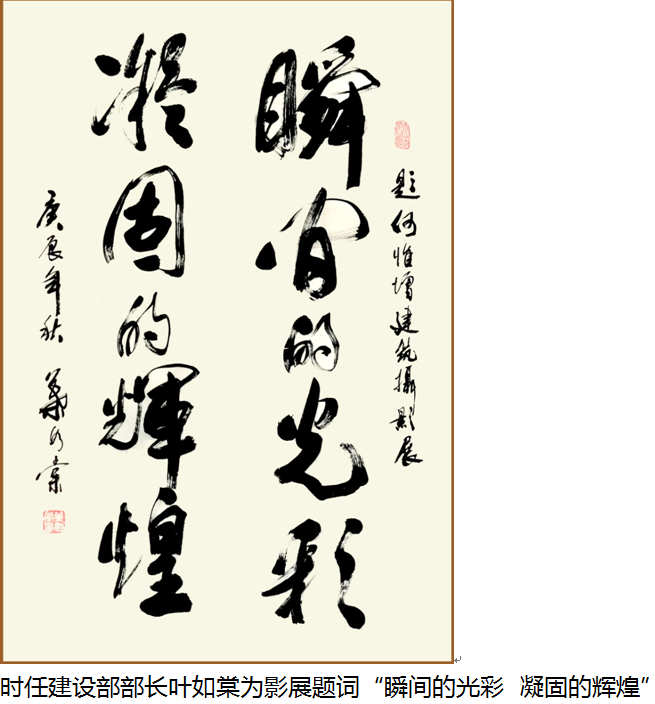 題何惟增建筑攝影展
瞬间的光彩
凝固的輝煌
庚辰年秋 葉如棠
时任建设部部长叶如棠为影展题词“瞬间的光彩 凝固的辉煌”